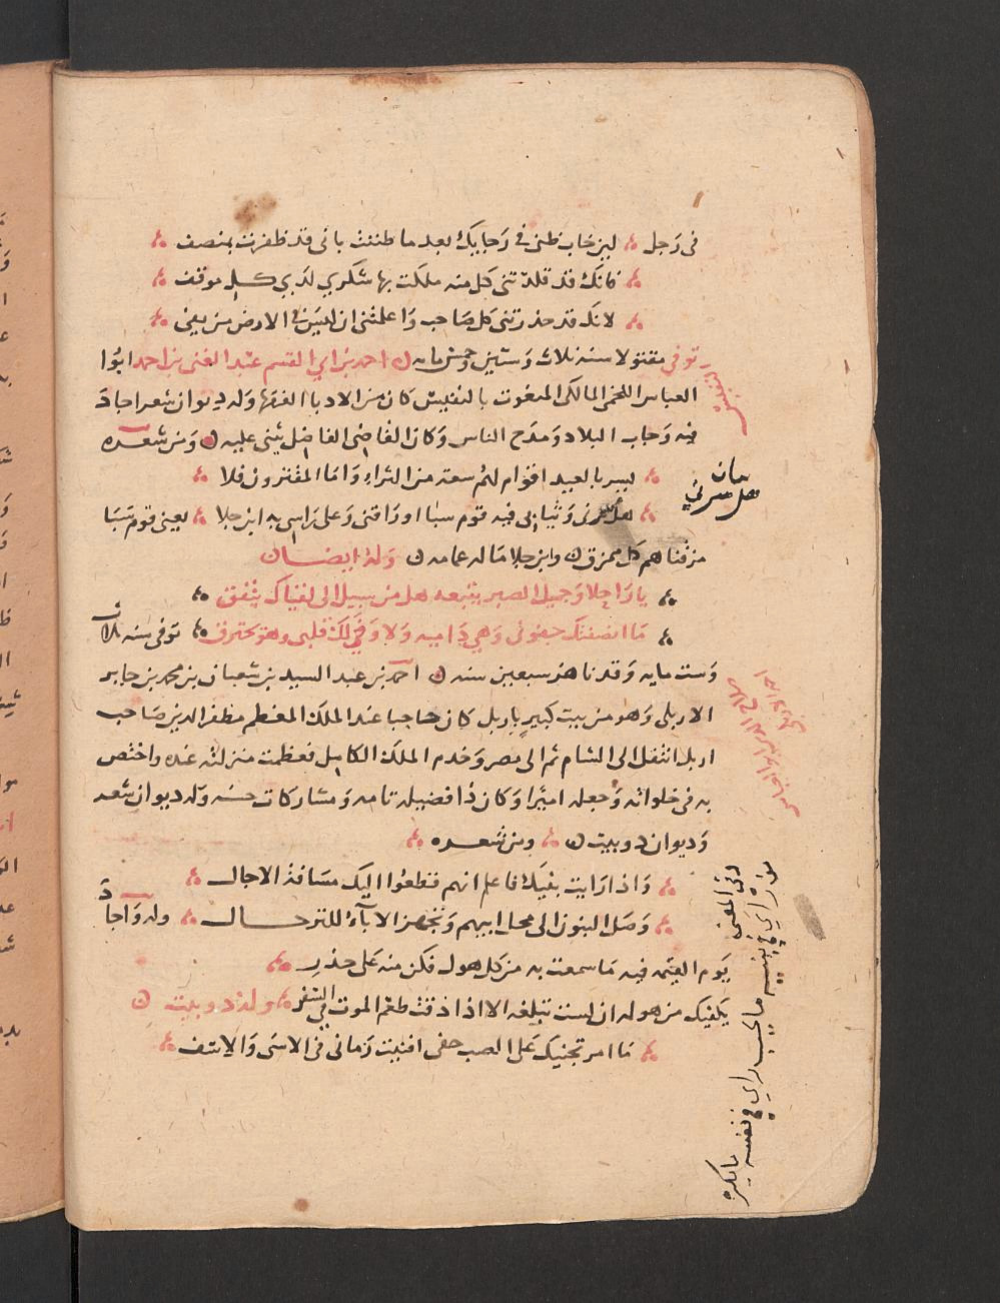 فى رجل لين خاب ظنى فى رجايك بعد ما ظننت بانى قد ظفرت بمنصف
فانك قد قلدتنى كل منه ملكت بها شكري لدي كل موقف
لانك قد حذرتنى كل صاحب واعلمتنى ان ليس فى الارض من يفى
توفى مقتولا سنه ثلاث وستين وخمس مايه احمد بن ابي القسم عبد الغنى بن احمد ابوا
العباس اللخمى المالكى المنعوت بالنفيس كان من الادبا الفقها وله ديوان شعر اجاد
فيه وجاب البلاد ومدح الناس وكان القاضى الفاضل يثنى عليه ومن شعره
يسر بالعيد اقوام لهم سعة من الثراء واما المقترون فلا
هل سرنى وثيابى فيه قوم سبا او راقنى وعلى راسى به ابن جلا يعنى قوم سبا
مزقناهم كل ممزق وابن جلا ماله عمامه وله ايضا
يا راحلا وجميل الصبر يتبعه هل من سبيل الى لقياك يتفق
ما انصفتك جفونى وهي داميه ولا وفى لك قلبى وهو يحترق توفى سنه
وست مايه وقد ناهز سبعين سنه احمد بن عبد السيد بن شعبان بن محمد بن جابر
الاربلى وهو من بيت كبير باربل كان حاجبا عند الملك المعظم مظفر الدين صاحب
اربل انتقل الى الشام ثم الى مصر وخدم الملك الكامل فعظمت منزلته عنده واختص
به فى خلواته وجعله اميرا وكان ذا فضيله تامه ومشاركات حسنه وله ديوان شعر
وديوان دوبيت ومن شعره
واذا رايت بنيك فاعلم انهم قطعوا اليك مسافة الاجال
وصل البنون الى محل ابيهم وتجهز الاباء للترحال وله واجاد
يوم القيمه فيه ما سمعت به من كل هول فكن منه على حذر
يكفيك من هوله ان لست تبلغه الا اذا ذقت طعم الموت في السفر وله دوبيت
ما امر تجنيك على الصب خفى افنيت زمانى فى الاسى والاسف
النفيس
بيان
هل سرني
احمد الاربلي
صلاح الدين ابو العباس
وفي المعنى
من راي في بنيه ما يحب راي في نفسه ما يكره